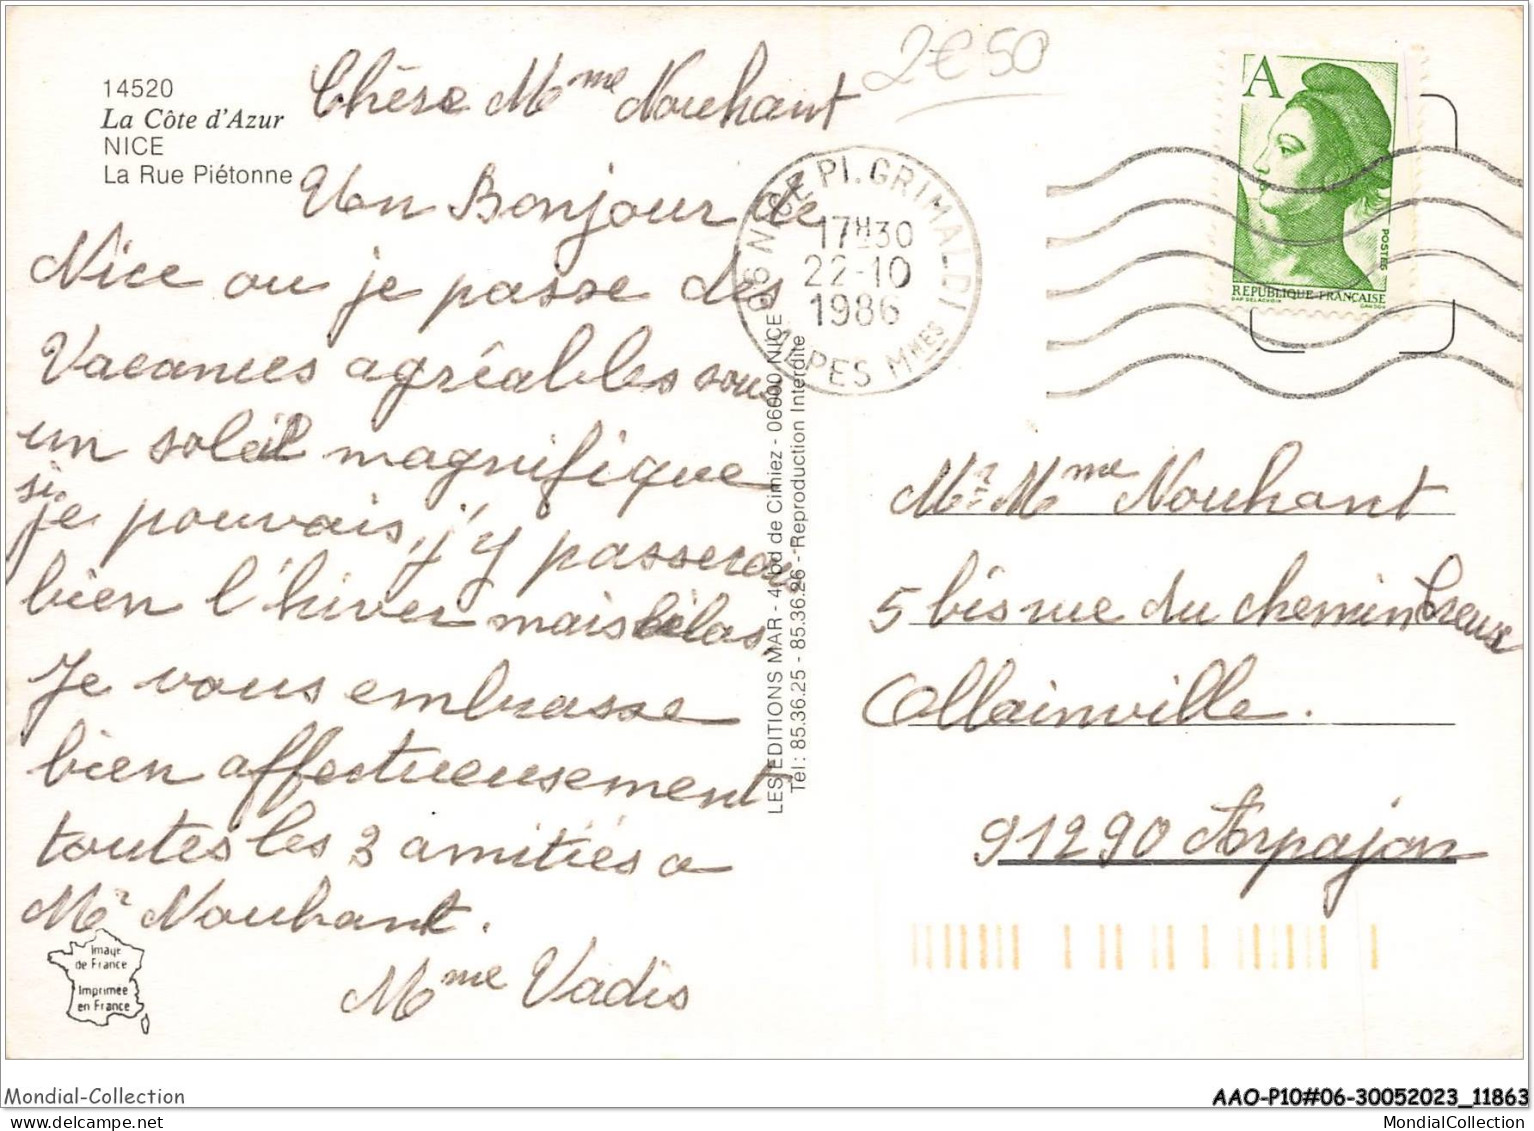 14520
La Côte d'Azur
NICE
La Rue Piétonne
Chère Mme Nouhant
Un Bonjour de
Nice ou je passe des
Vacances agréables sous
un soleil magnifique
si je pouvais, j'y passerais
bien l'hiver mais hélas.
Je vous embrasse
bien affectueusement
toutes les 3 amitiés a
Mr Nouhant.
Mme Vadis
Image
de France
Imprimée
en France
LES EDITIONS MAR - bd de Cimiez - 06000 NICE
Tél: 85.36.25 - 85.36.26 - Reproduction Interdite
2€50
06 NICE Pl. GRIMALDI
17H30
22-10
1986
ALPES MMES
A
POSTES
REPUBLIQUE FRANÇAISE
DAP DELACROIX GANDON
Mr Mme Nouhant
5 bis rue du chemin Creux
Ollainville.
91290 Arpajon
Mondial-Collection
AAO-P10#06-30052023_11863
MondialCollection